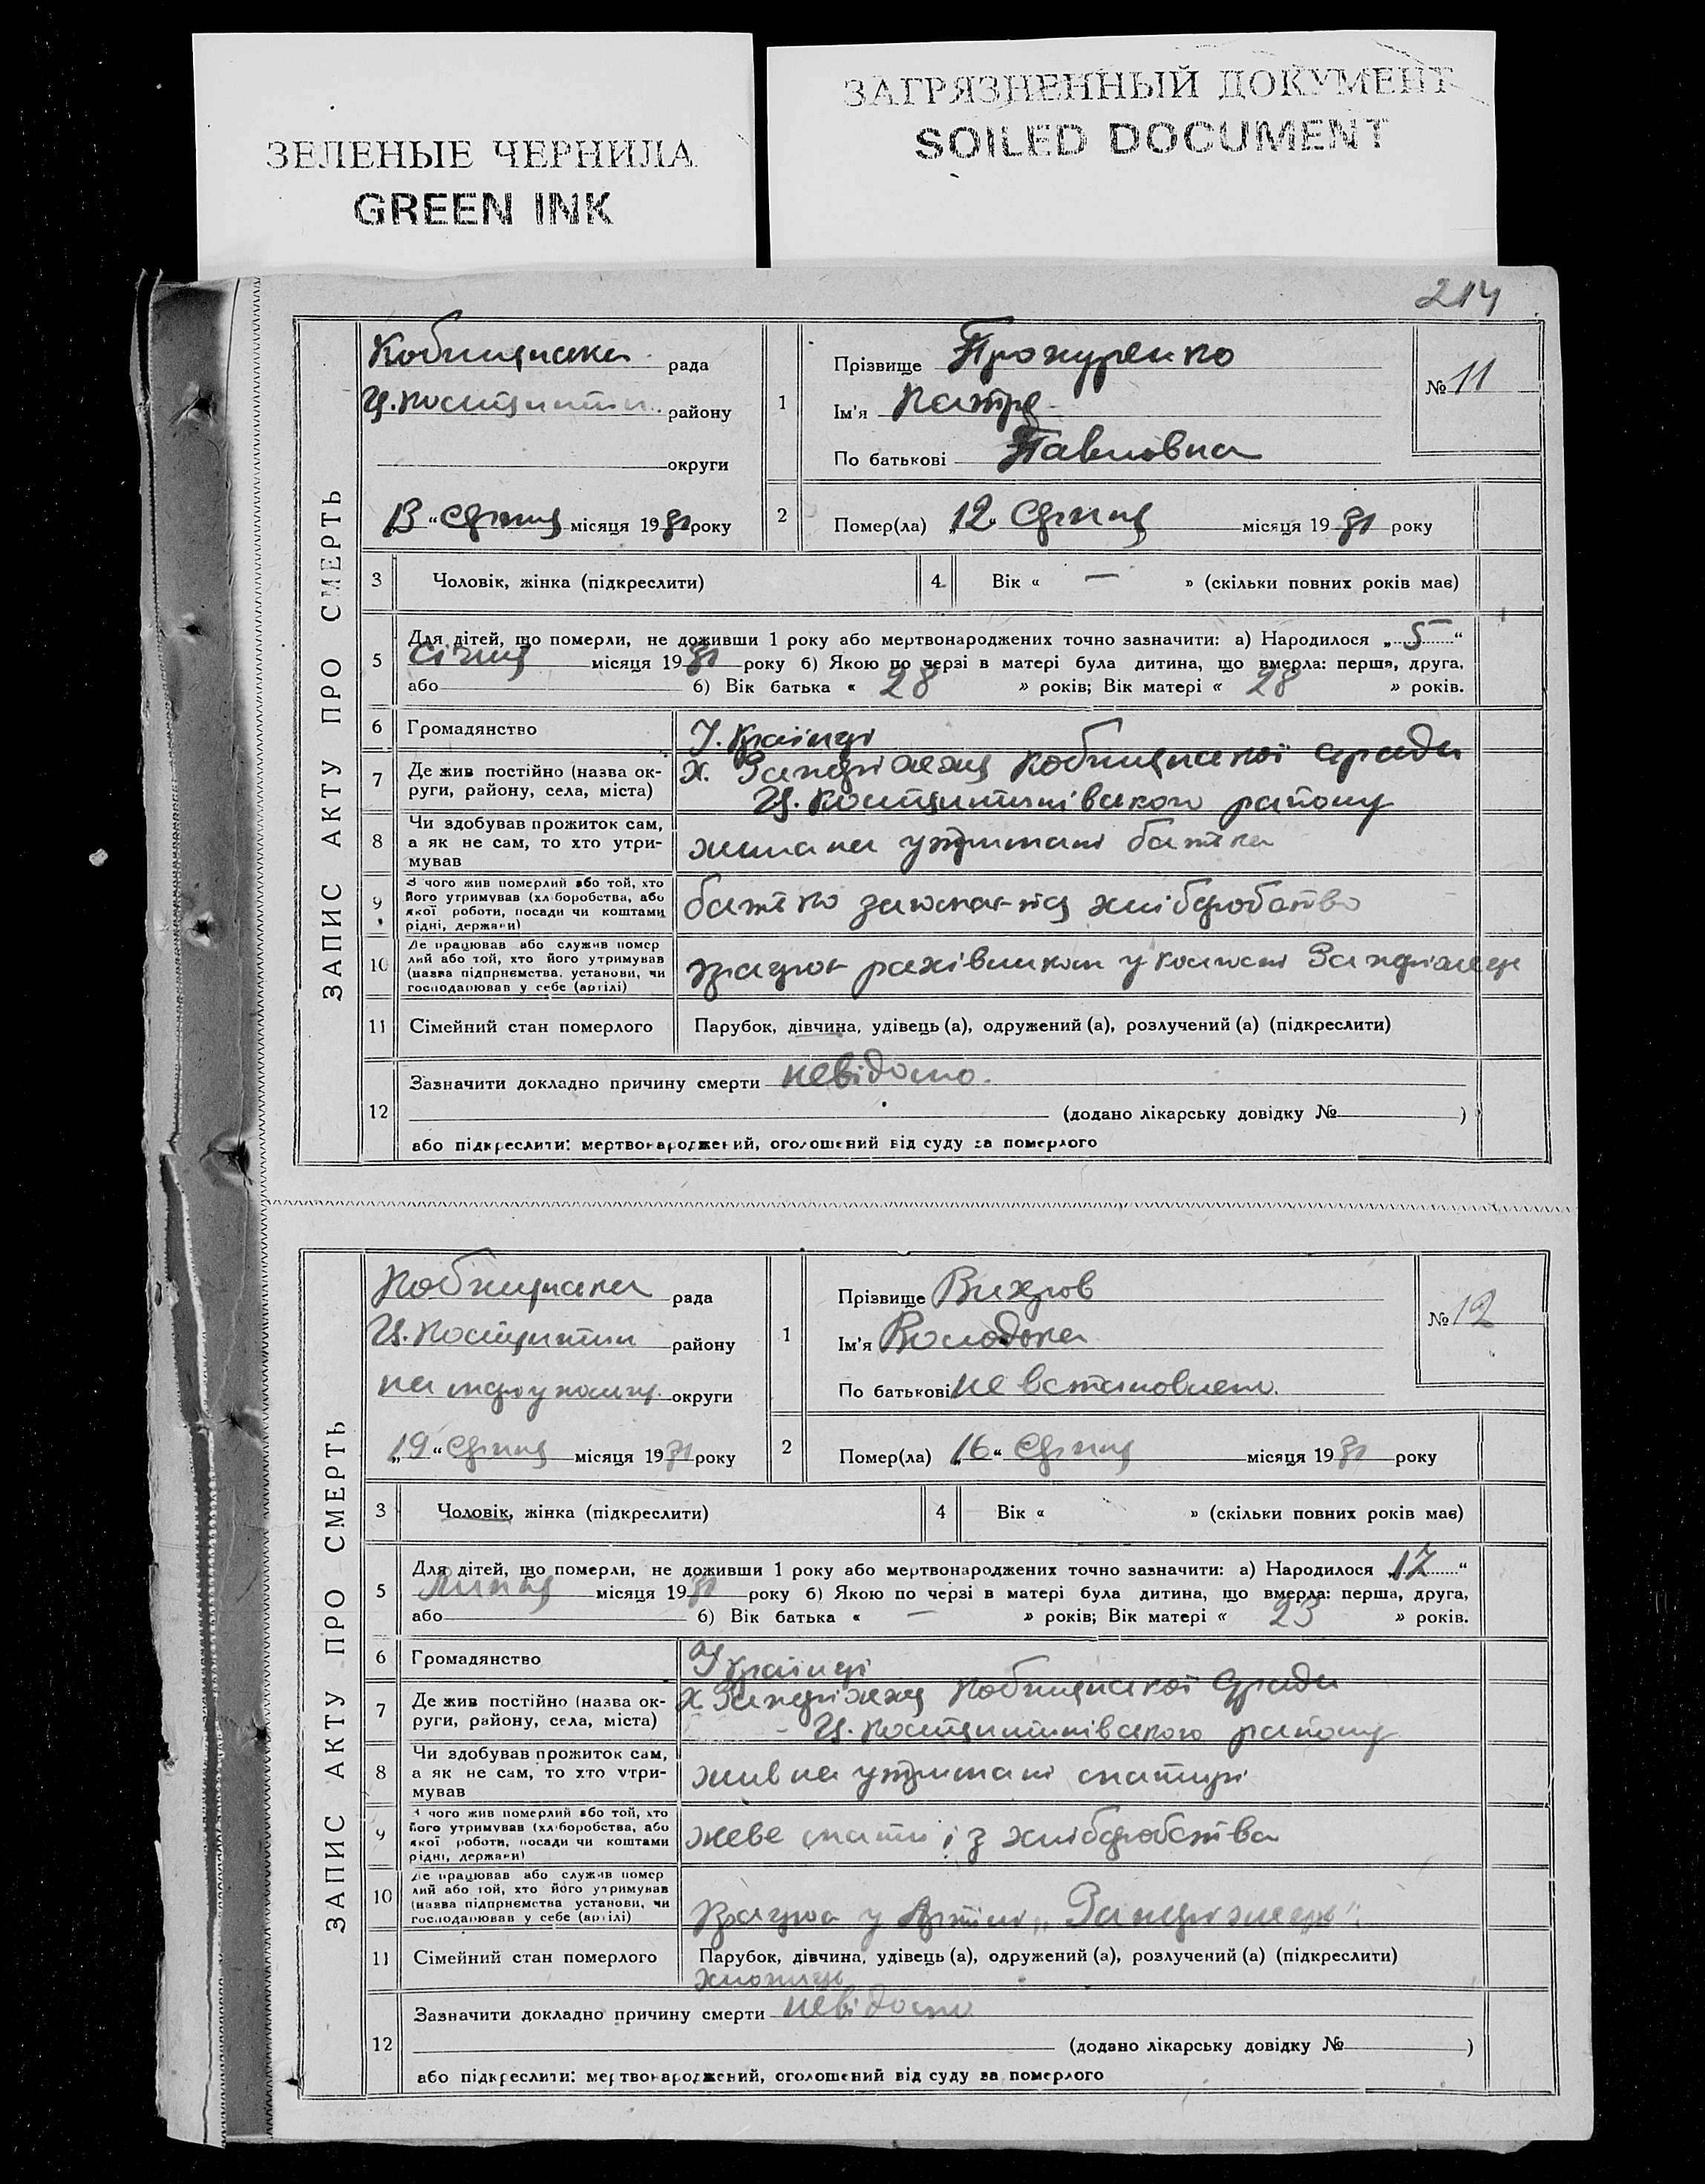 ЗЕЛЕНЫЕ ЧЕРНИЛА
GREEN INK
ЗАГРЯЗНЕННЫЙ ДОКУМЕНТ
SOILED DOCUMENT
214
ЗАПИС АКТУ ПРО СМЕРТЬ
рада
району
округи
13 " місяця 1931 року
1
Прізвище Прокуренко
Ім'я
По батькові Павловна
№ 11
2
Помер(ла) „12" місяця 1931 року
3 Чоловік, жінка (підкреслити)
4 Вік « — » (скільки повних років має)
5 Для дітей, що померли, не доживши 1 року або мертвонароджених точно зазначити: а) Народилося „ 5 "
січня місяця 1931 року б) Якою по черзі в матері була дитина, що вмерла: перша, друга,
або б) Вік батька « 28 » років; Вік матері « 28 » років.
6 Громадянство Українці
7 Де жив постійно (назва ок-
руги, району, села, міста)
х. Кобищанської с/ради
Ц. району
8 Чи здобував прожиток сам,
а як не сам, то хто утри-
мував
жила на утримані батька
9 З чого жив померлий або той, хто
його утримував (хліборобства, або
якої роботи, посади чи коштами
рідні, держави)
батько хліборобство
10 Де працював або служив помер
лий або той, хто його утримував
(назва підприємства, установи, чи
господарював у себе (артілі)
рахівником у
11 Сімейний стан померлого Парубок, дівчина, удівець (а), одружений (а), розлучений (а) (підкреслити)
12 Зазначити докладно причину смерти невідомо.
(додано лікарську довідку № )
або підкреслити: мертвонароджений, оголошений від суду за померлого
ЗАПИС АКТУ ПРО СМЕРТЬ
рада
району
округи
„19" місяця 1931 року
1
Прізвище Вихров
Ім'я Володька
По батькові не встановлено.
№ 12
2
Помер(ла) „16" місяця 1931 року
3 Чоловік, жінка (підкреслити)
4 Вік « » (скільки повних років має)
5 Для дітей, що померли, не доживши 1 року або мертвонароджених точно зазначити: а) Народилося „ 17 "
липня місяця 1931 року б) Якою по черзі в матері була дитина, що вмерла: перша, друга,
або б) Вік батька « — » років; Вік матері « 23 » років.
6 Громадянство Українці
7 Де жив постійно (назва ок-
руги, району, села, міста)
х. Кобищанської с/ради
Ц. району
8 Чи здобував прожиток сам,
а як не сам, то хто утри-
мував
жив на утримані матирі
9 З чого жив померлий або той, хто
його утримував (хліборобства, або
якої роботи, посади чи коштами
рідні, держави)
жеве мати із хліборобства
10 Де працював або служив помер
лий або той, хто його утримував
(назва підприємства установи, чи
господарював у себе (артілі)
у Артілі
11 Сімейний стан померлого Парубок, дівчина, удівець (а), одружений (а), розлучений (а) (підкреслити)
хлопець
12 Зазначити докладно причину смерти невідомо
(додано лікарську довідку № )
або підкреслити: мертвонароджений, оголошений від суду за померлого